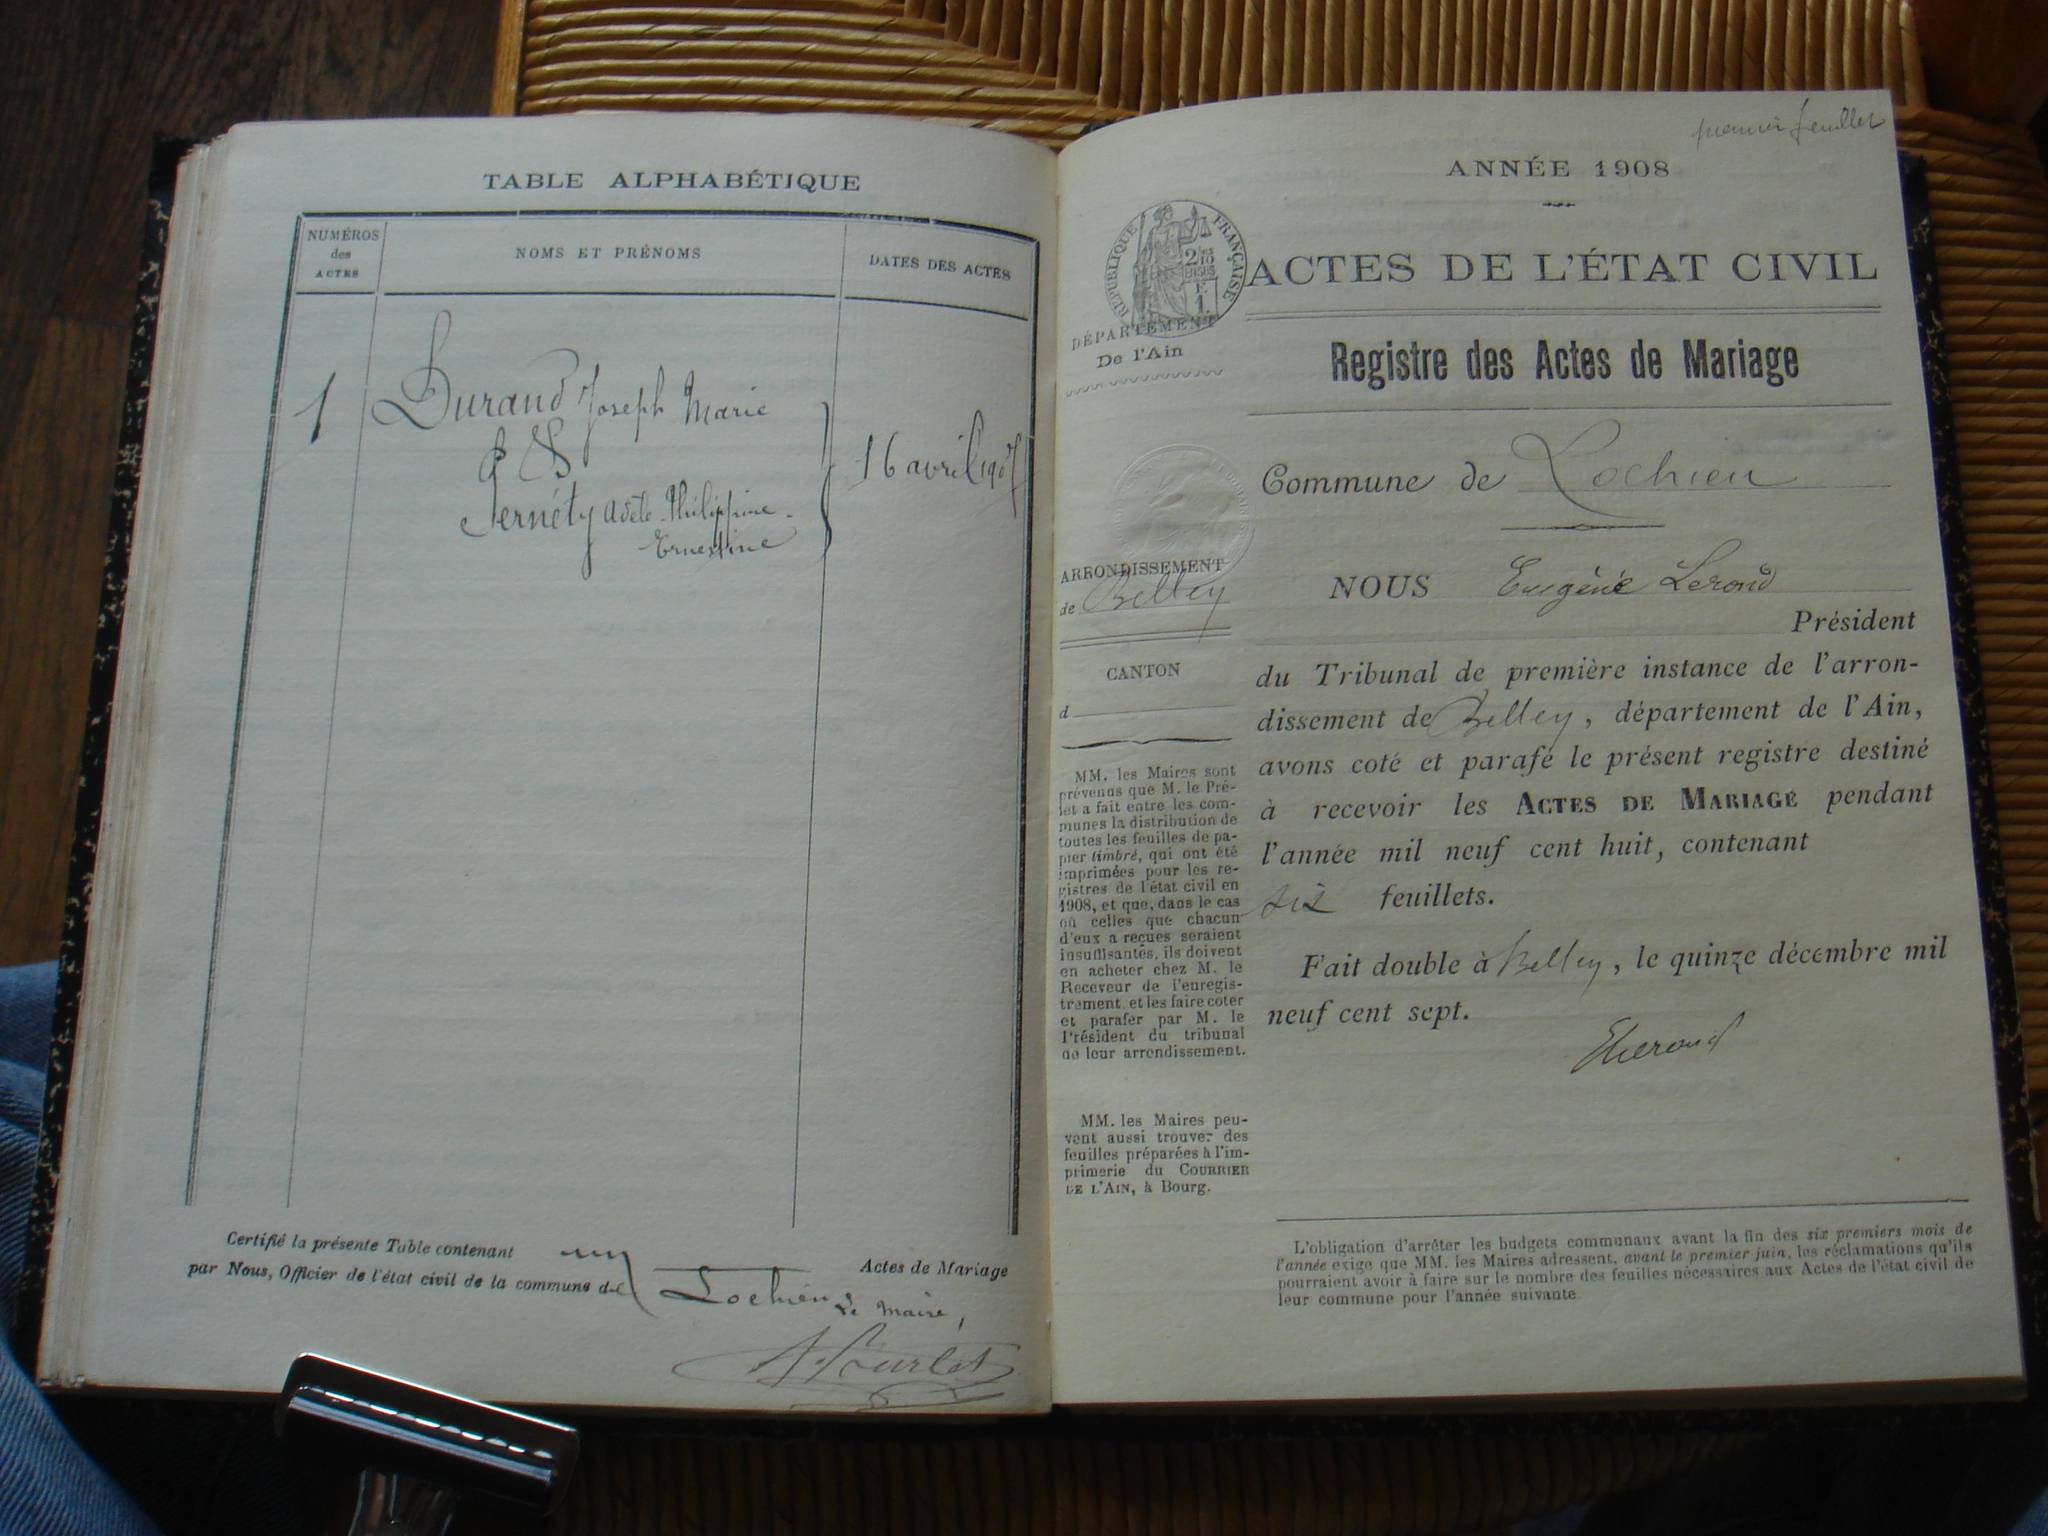 TABLE ALPHABÉTIQUE
NUMÉROS
des
ACTES
NOMS ET PRÉNOMS
DATES DES ACTES
1
Durand Joseph Marie
&
Pernéty Adèle Philippine
Ernestine
16 avril 1907
Certifié la présente Table contenant un Actes de Mariage
par Nous, Officier de l'état civil de la commune de Lochieu
Le Maire,
premier feuillet
ANNÉE 1908
RÉPUBLIQUE FRANÇAISE
ACTES DE L'ÉTAT CIVIL
DÉPARTEMENT
De l'Ain
Registre des Actes de Mariage
Commune de Lochieu
ARRONDISSEMENT
de Belley
CANTON
d
MM. les Maires sont
prévenus que M. le Pré-
fet a fait entre les com-
munes la distribution de
toutes les feuilles de pa-
pier timbré, qui ont été
imprimées pour les re-
gistres de l'état civil en
1908, et que, dans le cas
où celles que chacun
d'eux a reçues seraient
insuffisantes, ils doivent
en acheter chez M. le
Receveur de l'enregis-
trement et les faire coter
et parafer par M. le
Président du tribunal
de leur arrondissement.
MM. les Maires peu-
vent aussi trouver des
feuilles préparées à l'im-
primerie du COURRIER
DE L'AIN, à Bourg.
NOUS Eugène Lerond
Président
du Tribunal de première instance de l'arron-
dissement de Belley, département de l'Ain,
avons coté et parafé le présent registre destiné
à recevoir les ACTES DE MARIAGE pendant
l'année mil neuf cent huit, contenant
six feuillets.
Fait double à Belley, le quinze décembre mil
neuf cent sept.
L'obligation d'arrêter les budgets communaux avant la fin des six premiers mois de
l'année exige que MM. les Maires adressent, avant le premier juin, les réclamations qu'ils
pourraient avoir à faire sur le nombre des feuilles nécessaires aux Actes de l'état civil de
leur commune pour l'année suivante.